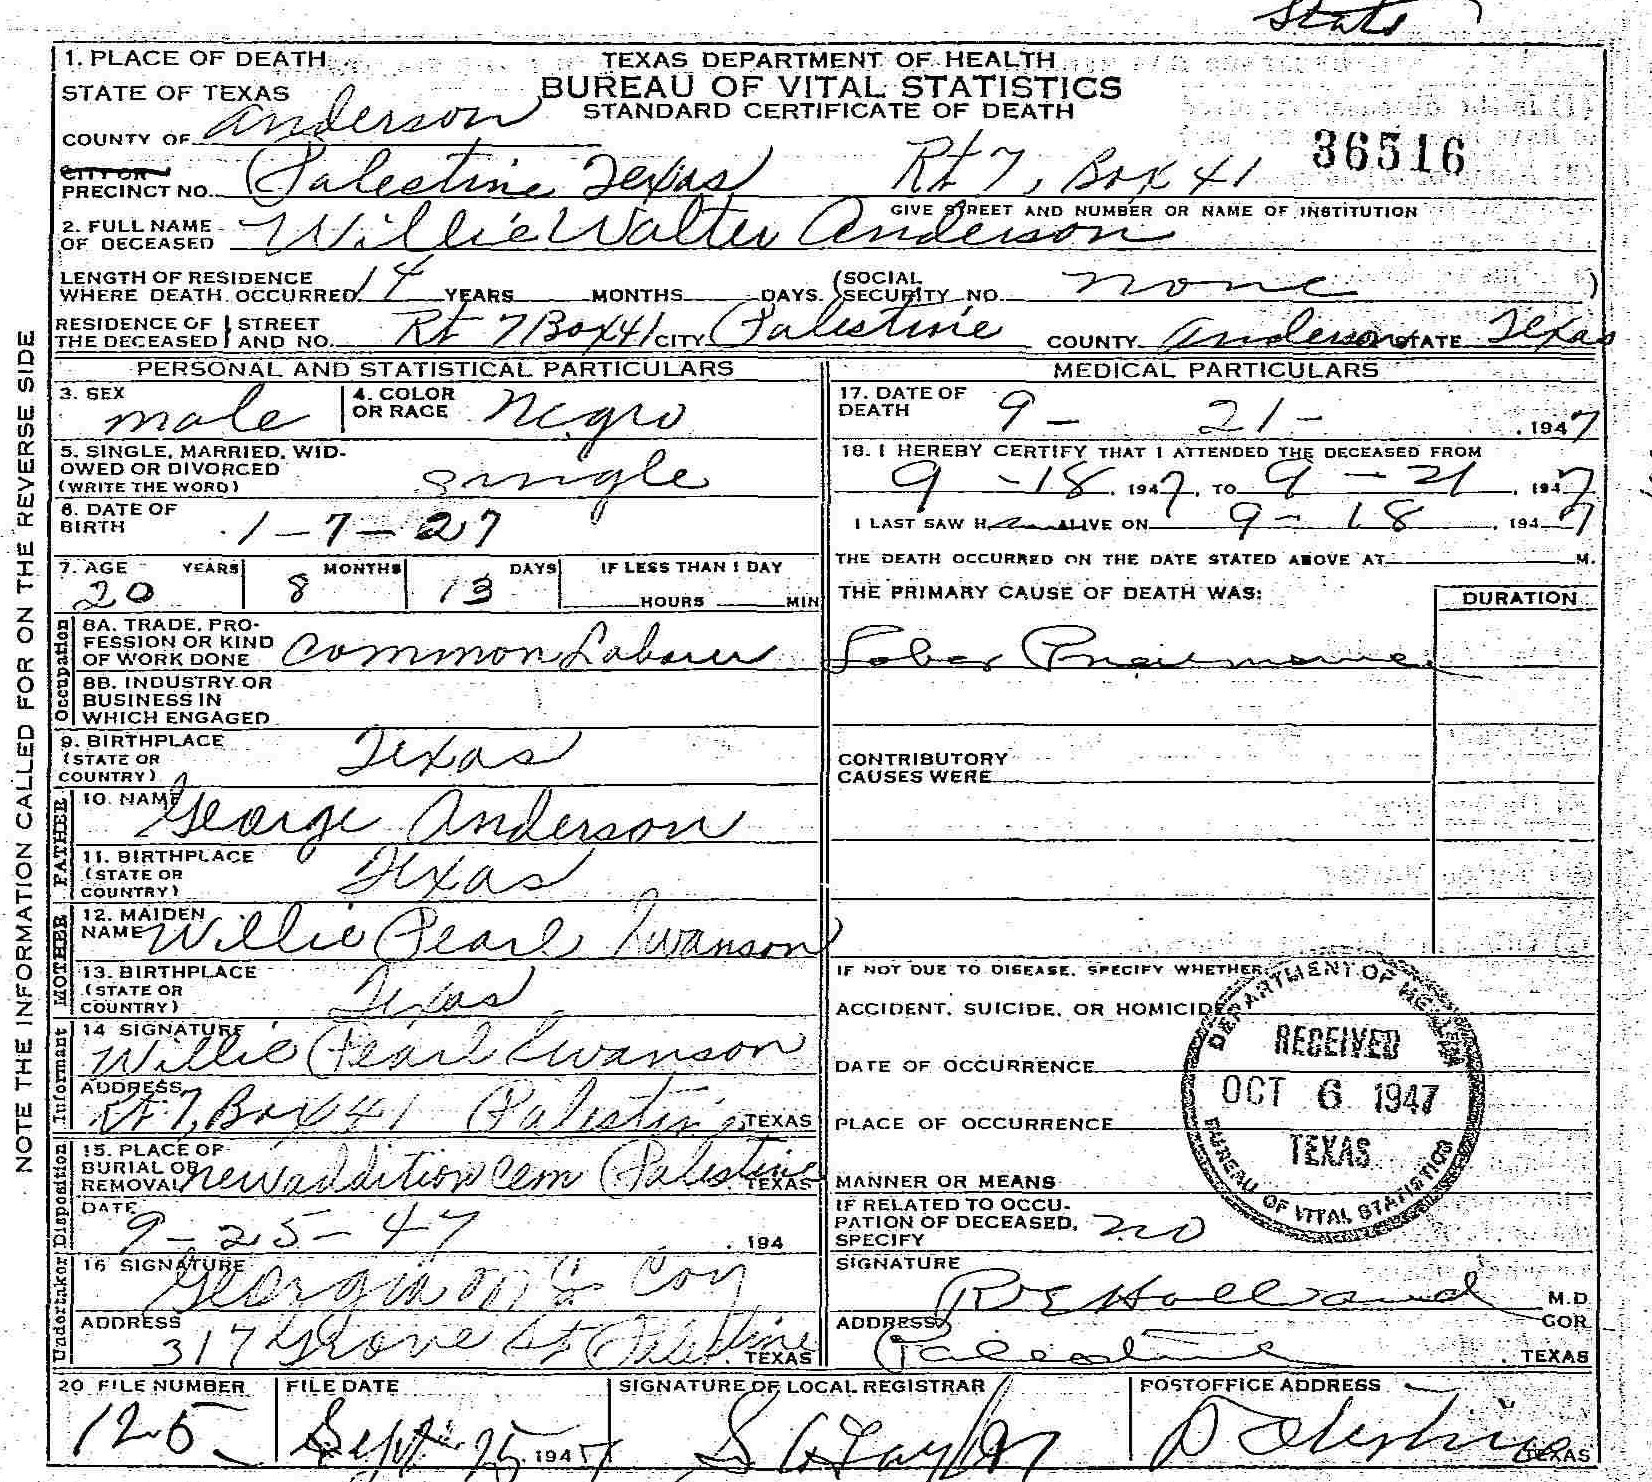 State
1. PLACE OF DEATH
STATE OF TEXAS
COUNTY OF Anderson
TEXAS DEPARTMENT OF HEALTH
BUREAU OF VITAL STATISTICS
STANDARD CERTIFICATE OF DEATH
36516
CITY OR
PRECINCT NO. Palestine Texas Rt 7, Box 41
GIVE STREET AND NUMBER OR NAME OF INSTITUTION
2. FULL NAME
OF DECEASED Willie Walter Anderson
LENGTH OF RESIDENCE
WHERE DEATH OCCURRED 14 YEARS MONTHS DAYS. (SOCIAL SECURITY NO. none )
RESIDENCE OF THE DECEASED STREET AND NO. Rt 7 Box 41 CITY Palestine COUNTY Anderson STATE Texas
PERSONAL AND STATISTICAL PARTICULARS
3. SEX male
4. COLOR OR RACE Negro
5. SINGLE, MARRIED, WID-
OWED OR DIVORCED
(WRITE THE WORD) single
6. DATE OF
BIRTH 1-7-27
7. AGE YEARS MONTHS DAYS IF LESS THAN 1 DAY
20 8 13 HOURS MIN
Occupation
8A. TRADE, PRO-
FESSION OR KIND
OF WORK DONE Common Laborer
8B. INDUSTRY OR
BUSINESS IN
WHICH ENGAGED
9. BIRTHPLACE
(STATE OR
COUNTRY) Texas
FATHER
10. NAME George Anderson
11. BIRTHPLACE
(STATE OR
COUNTRY) Texas
MOTHER
12. MAIDEN
NAME Willie Pearl Swanson
13. BIRTHPLACE
(STATE OR
COUNTRY) Texas
Informant
14 SIGNATURE
Willie Pearl Swanson
ADDRESS
Rt 7, Box 41 Palestine TEXAS
Disposition
15. PLACE OF
BURIAL OR
REMOVAL new addition cem Palestine TEXAS
DATE
9-25-47 , 194
Undertaker
16 SIGNATURE
Georgia Mc Coy
ADDRESS
317 Grove St Palestine TEXAS
MEDICAL PARTICULARS
17. DATE OF
DEATH 9- 21- , 1947
18. I HEREBY CERTIFY THAT I ATTENDED THE DECEASED FROM
9-18, 1947, TO 9-21, 1947
I LAST SAW H ALIVE ON 9-18, 1947
THE DEATH OCCURRED ON THE DATE STATED ABOVE AT M.
THE PRIMARY CAUSE OF DEATH WAS: DURATION
Lobar Pneumonia
CONTRIBUTORY
CAUSES WERE
IF NOT DUE TO DISEASE, SPECIFY WHETHER
ACCIDENT, SUICIDE, OR HOMICIDE
DATE OF OCCURRENCE
PLACE OF OCCURRENCE
MANNER OR MEANS
DEPARTMENT OF HEALTH
RECEIVED
OCT 6 1947
TEXAS
BUREAU OF VITAL STATISTICS
IF RELATED TO OCCU-
PATION OF DECEASED,
SPECIFY no
SIGNATURE
R E Holland M.D.
COR
ADDRESS
Palestine , TEXAS
20 FILE NUMBER FILE DATE SIGNATURE OF LOCAL REGISTRAR POSTOFFICE ADDRESS
125 Sept 25 1947 Palestine TEXAS
NOTE THE INFORMATION CALLED FOR ON THE REVERSE SIDE